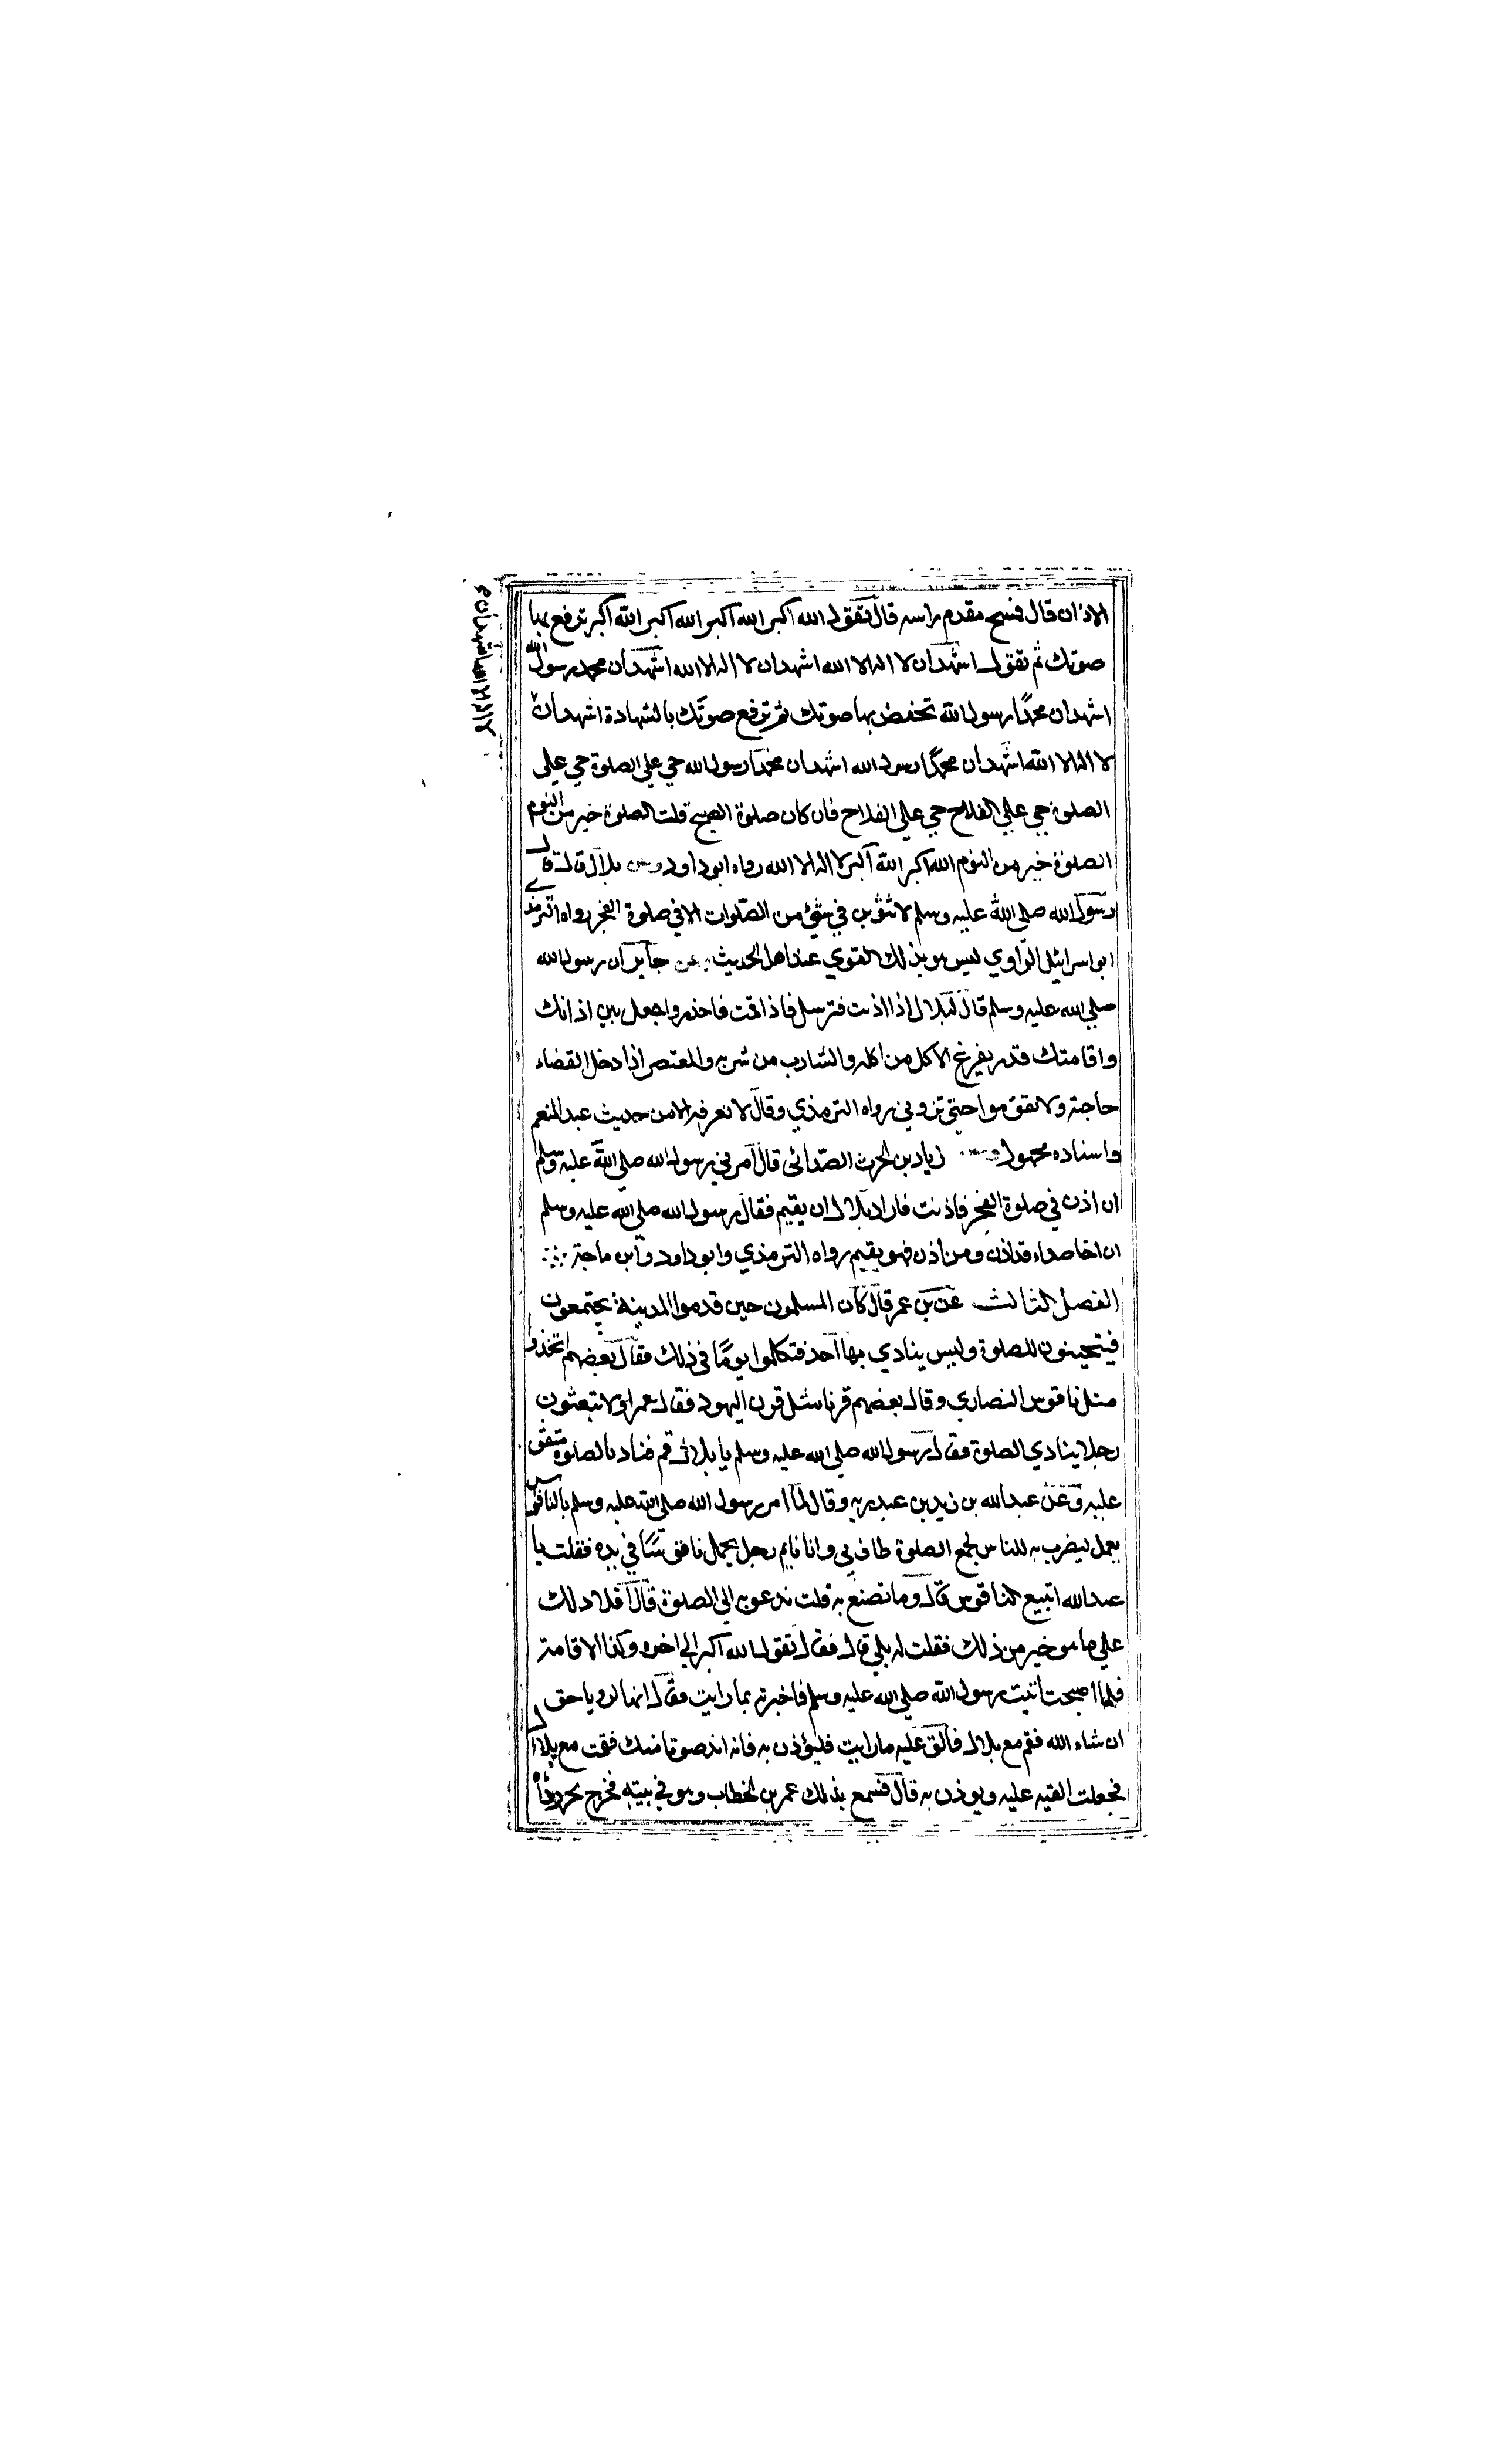 الاذان قال فمسح مقدم راسه قال تقول الله اكبر الله اكبر الله اكبر الله اكبر ترفع بها
صوتك ثم تقول اشهد ان لا اله الا الله اشهد ان لا اله الا الله اشهد ان محمد رسول الله
اشهد ان محمدا رسول الله تخفض بها صوتك ثم ترفع صوتك بالشهادة اشهد ان
لا اله الا الله اشهد ان محمدا رسول الله اشهد ان محمدا رسول الله حي علي الصلوة حي علي
الصلوة حي علي الفلاح حي علي الفلاح فان كان صلوة الصبح قلت الصلوة خير من النوم
الصلوة خير من النوم الله اكبر الله اكبر لا اله الا الله رواه ابو داود وعن بلال قال قال
رسول الله صلي الله عليه وسلم لا تثوبن في شيئ من الصلوات الا في صلوة الفجر رواه الترمذي
ابو اسرائيل الراوي ليس هو بذلك القوي عند اهل الحديث وعن جابر ان رسول الله
صلي الله عليه وسلم قال لبلال اذا اذنت فترسل فاذا اقمت فاحذر واجعل بين اذانك
واقامتك قدر يفرغ الاكل من اكله والشارب من شربه والمعتصر اذا دخل لقضاء
حاجته ولا تقوموا حتي تروني رواه الترمذي وقال لا نعرفه الا من حديث عبد المنعم
واسناده مجهول وعن زياد بن الحرث الصدائي قال امرني رسول الله صلي الله عليه وسلم
ان اذن في صلوة الفجر فاذنت فاراد بلال ان يقيم فقال رسول الله صلي الله عليه وسلم
ان اخا صداء قد اذن ومن اذن فهو يقيم رواه الترمذي وابو داود وابن ماجة
الفصل الثالث عن بن عمر قال كان المسلمون حين قدموا المدينة يجتمعون
فيتحينون للصلوة وليس ينادي بها احد فتكلموا يوما في ذلك فقال بعضهم اتخذوا
مثل ناقوس النصاري وقال بعضهم قرنا مثل قرن اليهود فقال عمر اولا تبعثون
رجلا ينادي الصلوة فقال رسول الله صلي الله عليه وسلم يا بلال قم فناد بالصلوة متفق
عليه وعن عبدالله بن زيد بن عبد ربه وقال لما امر رسول الله صلي الله عليه وسلم بالناقوس
يعمل ليضرب به للناس لجمع الصلوة طاف بي وانا نايم رجل يحمل ناقوسا في يده فقلت يا
عبدالله اتبيع الناقوس قال وما تصنع به قلت ندعو به الي الصلوة قال افلا دلك
علي ما هو خير من ذلك فقلت له بلي قال فقال تقول الله اكبر الي اخره وكذا الاقامة
فلما اصبحت اتيت رسول الله صلي الله عليه وسلم فاخبرته بما رايت فقال انها لرويا حق
ان شاء الله فقم مع بلال فالق عليه ما رايت فليؤذن به فانه اندي صوتا منك فقمت مع بلال
فجعلت القيه عليه ويوذن به قال فسمع بذلك عمر بن الخطاب وهو في بيته فخرج يجر رداءه
لا اله الا الله اشهد ان